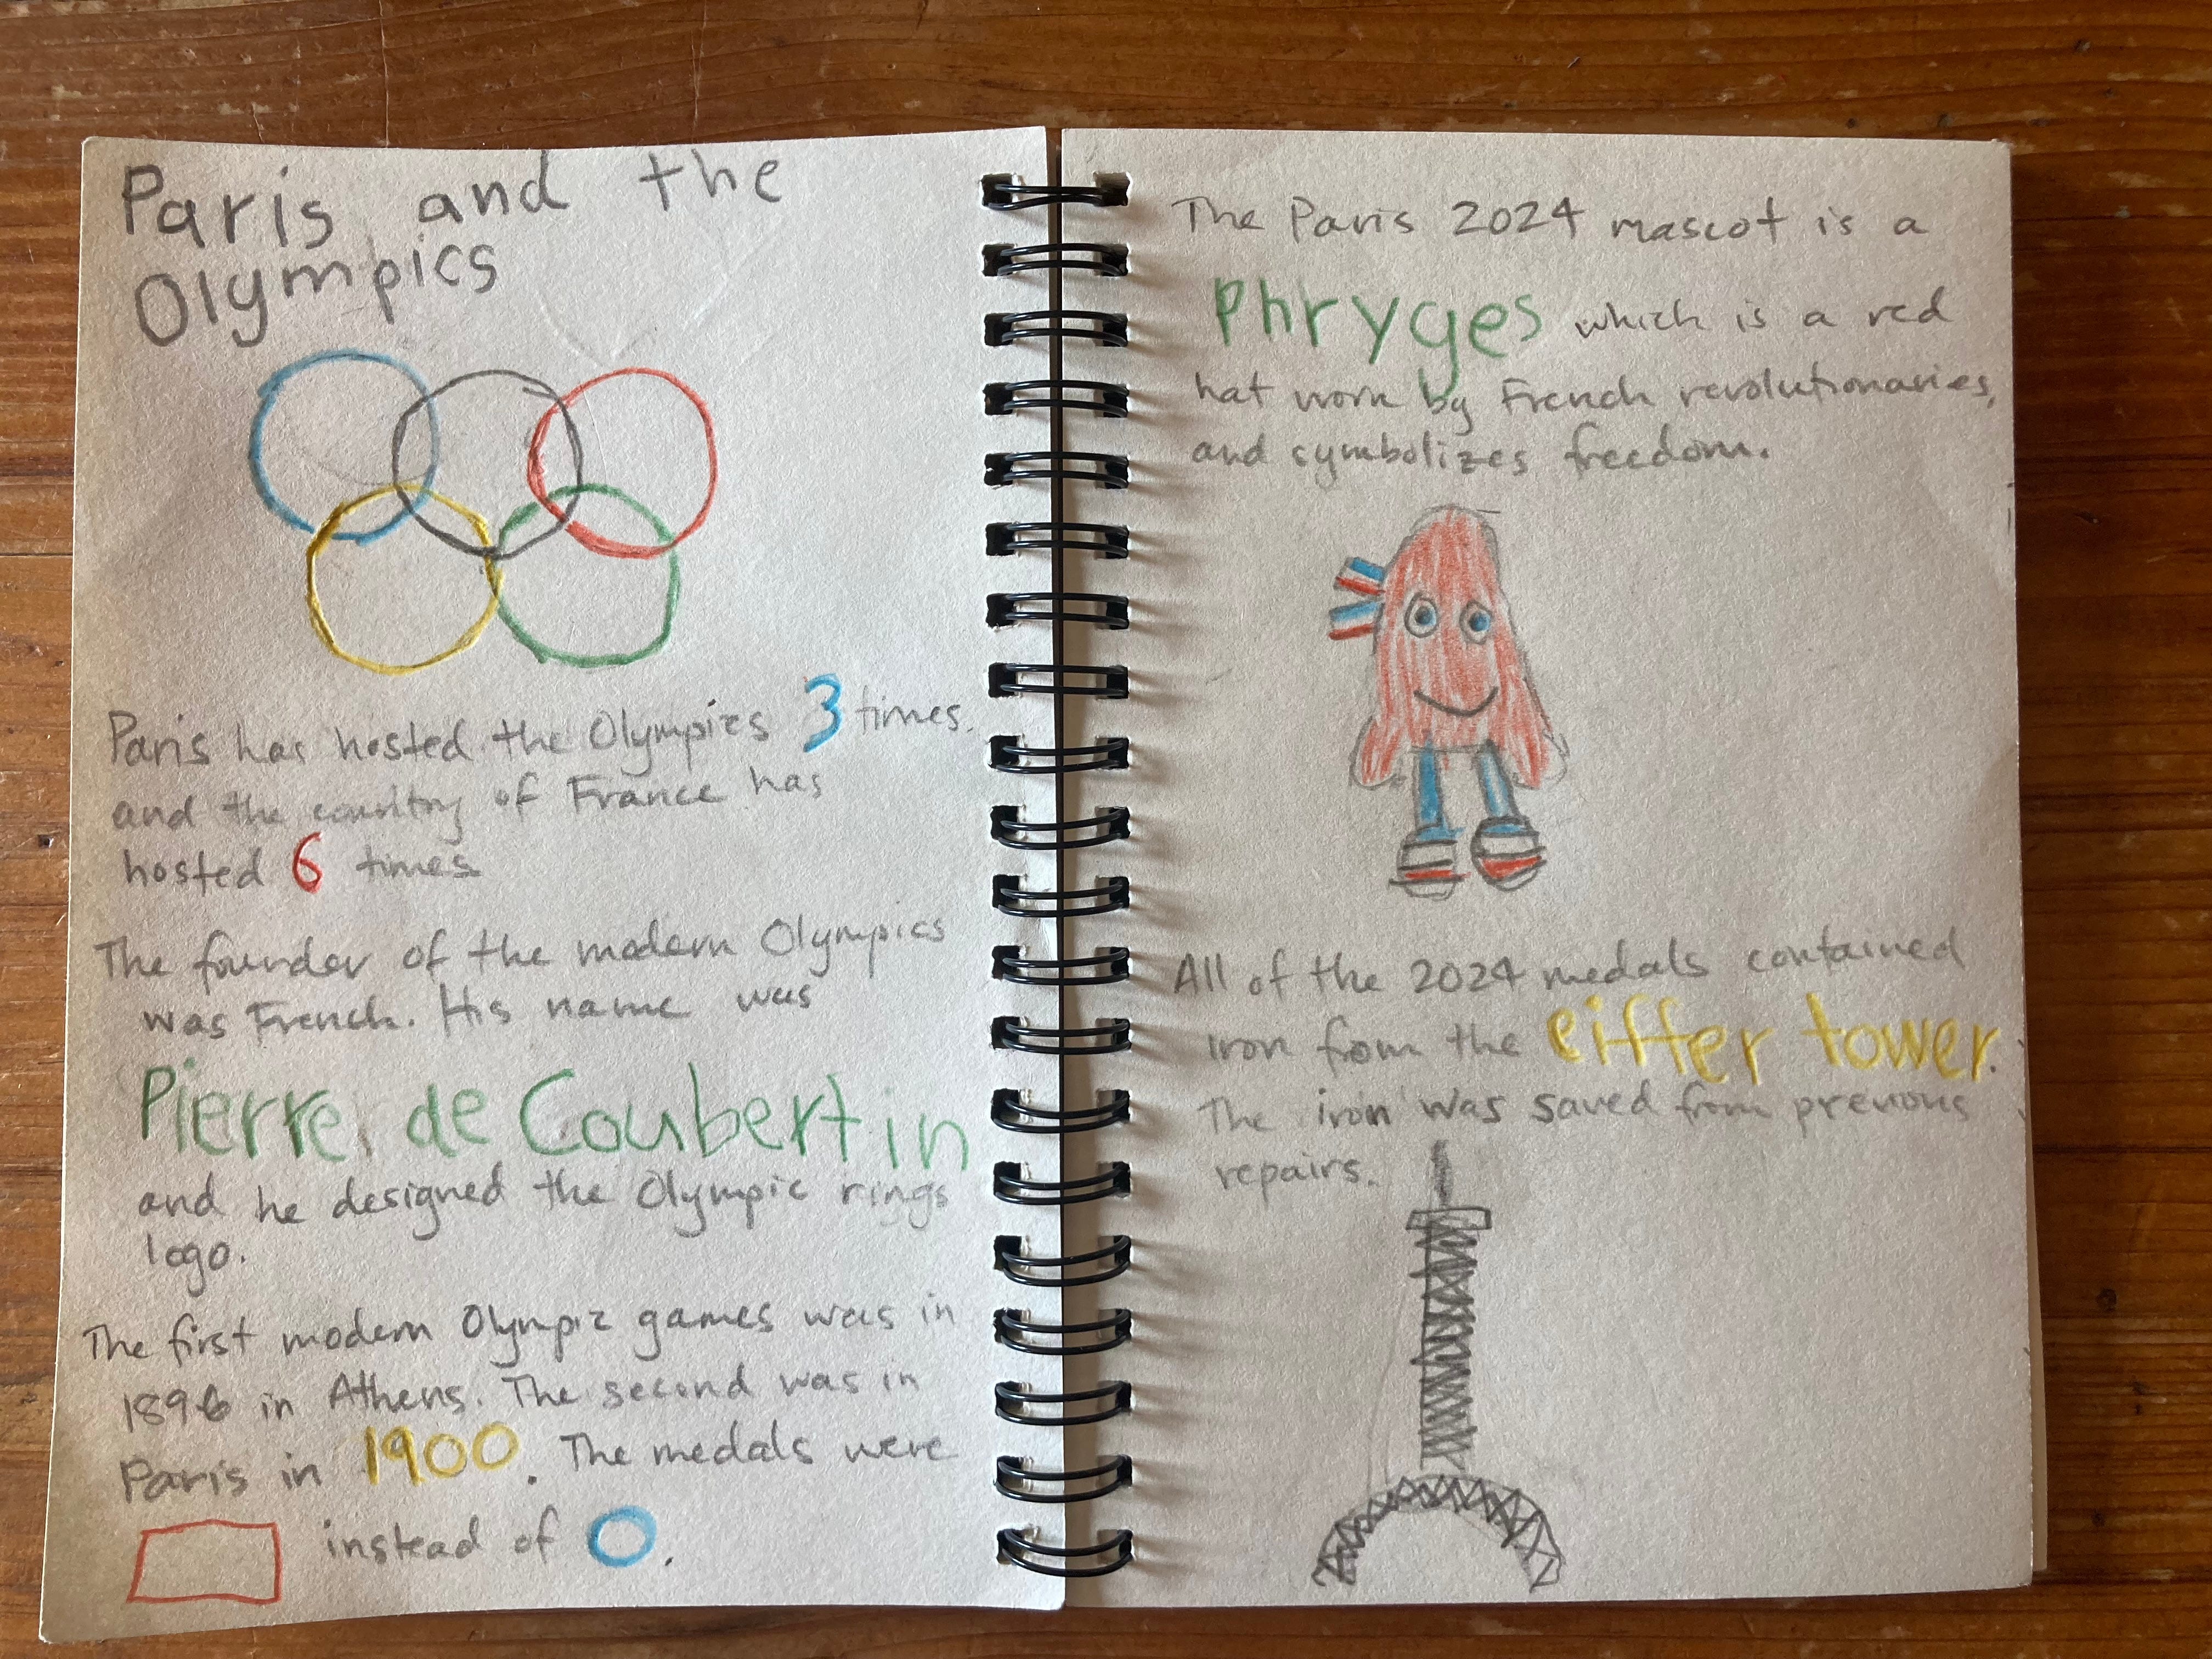 Paris and the
Olympics
Paris has hosted the Olympics 3 times.
and the country of France has
hosted 6 times
The founder of the modern Olympics
was French. His name was
Pierre de Coubertin
and he designed the Olympic rings
logo.
The first modern Olympic games was in
1896 in Athens. The second was in
Paris in 1900. The medals were
instead of
The Paris 2024 mascot is a
Phryges which is a red
hat worn by French revolutionaries,
and symbolizes freedom.
All of the 2024 medals contained
iron from the eiffer tower.
The iron was saved from previous
repairs.